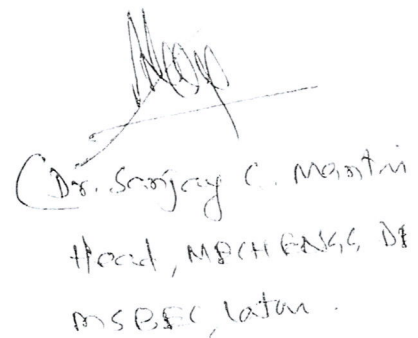 (Dr. Sanjay C. Mantri
Head, MECH ENGG DE
MSBEC, Latur.